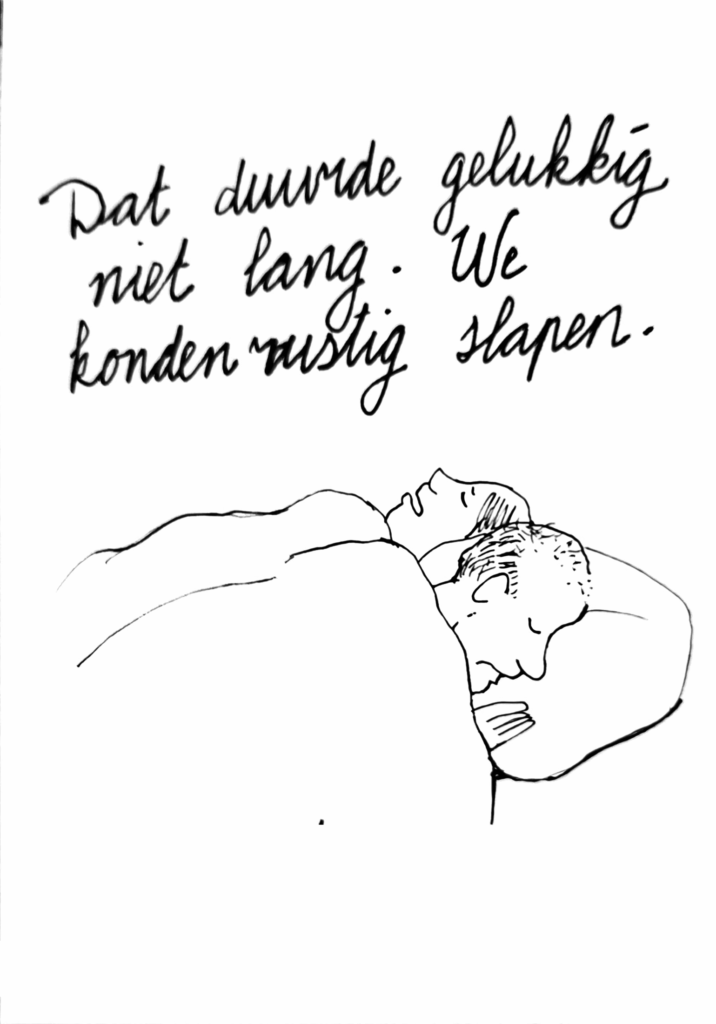 Dat duurde gelukkig
niet lang. We
konden rustig slapen.